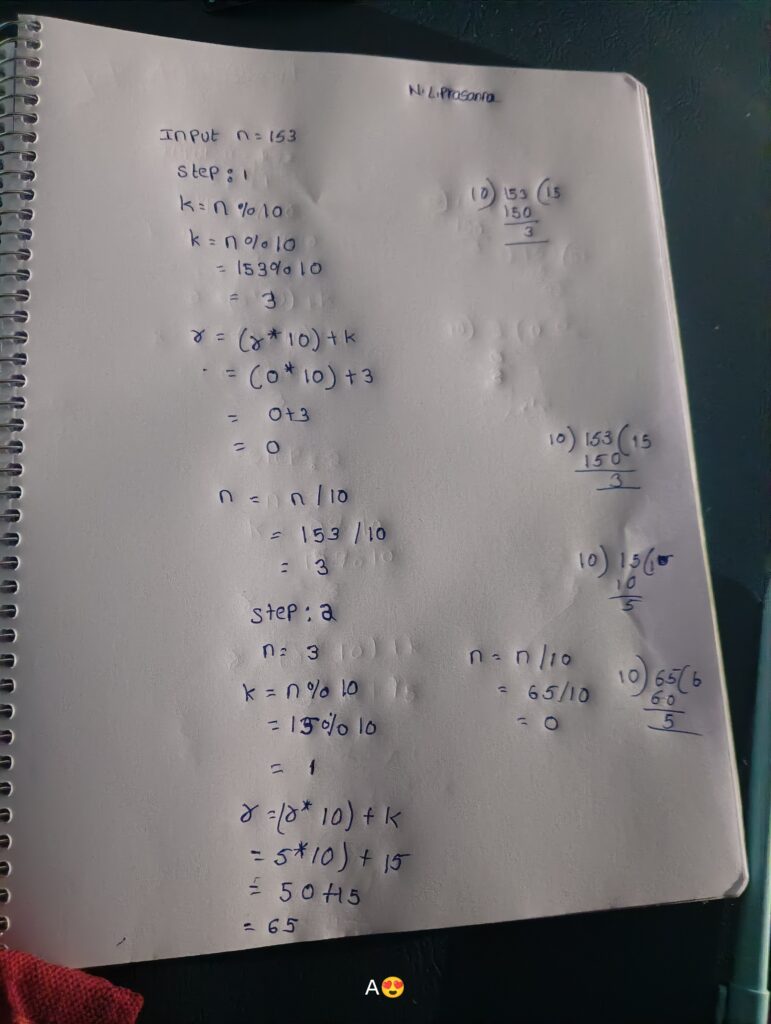 N.L.Prasanna
Input n = 153
Step : 1
k = n % 10
k = n % 10
= 153 % 10
= 3
r = (r * 10) + k
= (0 * 10) + 3
= 0+3
= 0
n = n / 10
= 153 / 10
= 3
Step : 2
n = 3
k = n % 10
= 15 % 10
= 1
r = (r * 10) + k
= 5 * 10) + 15
= 50 + 15
= 65
10) 153 (15
150
3
10) 153 (15
150
3
10) 15 (
10
5
n = n / 10
= 65 / 10
= 0
10) 65 (6
60
5
A😍